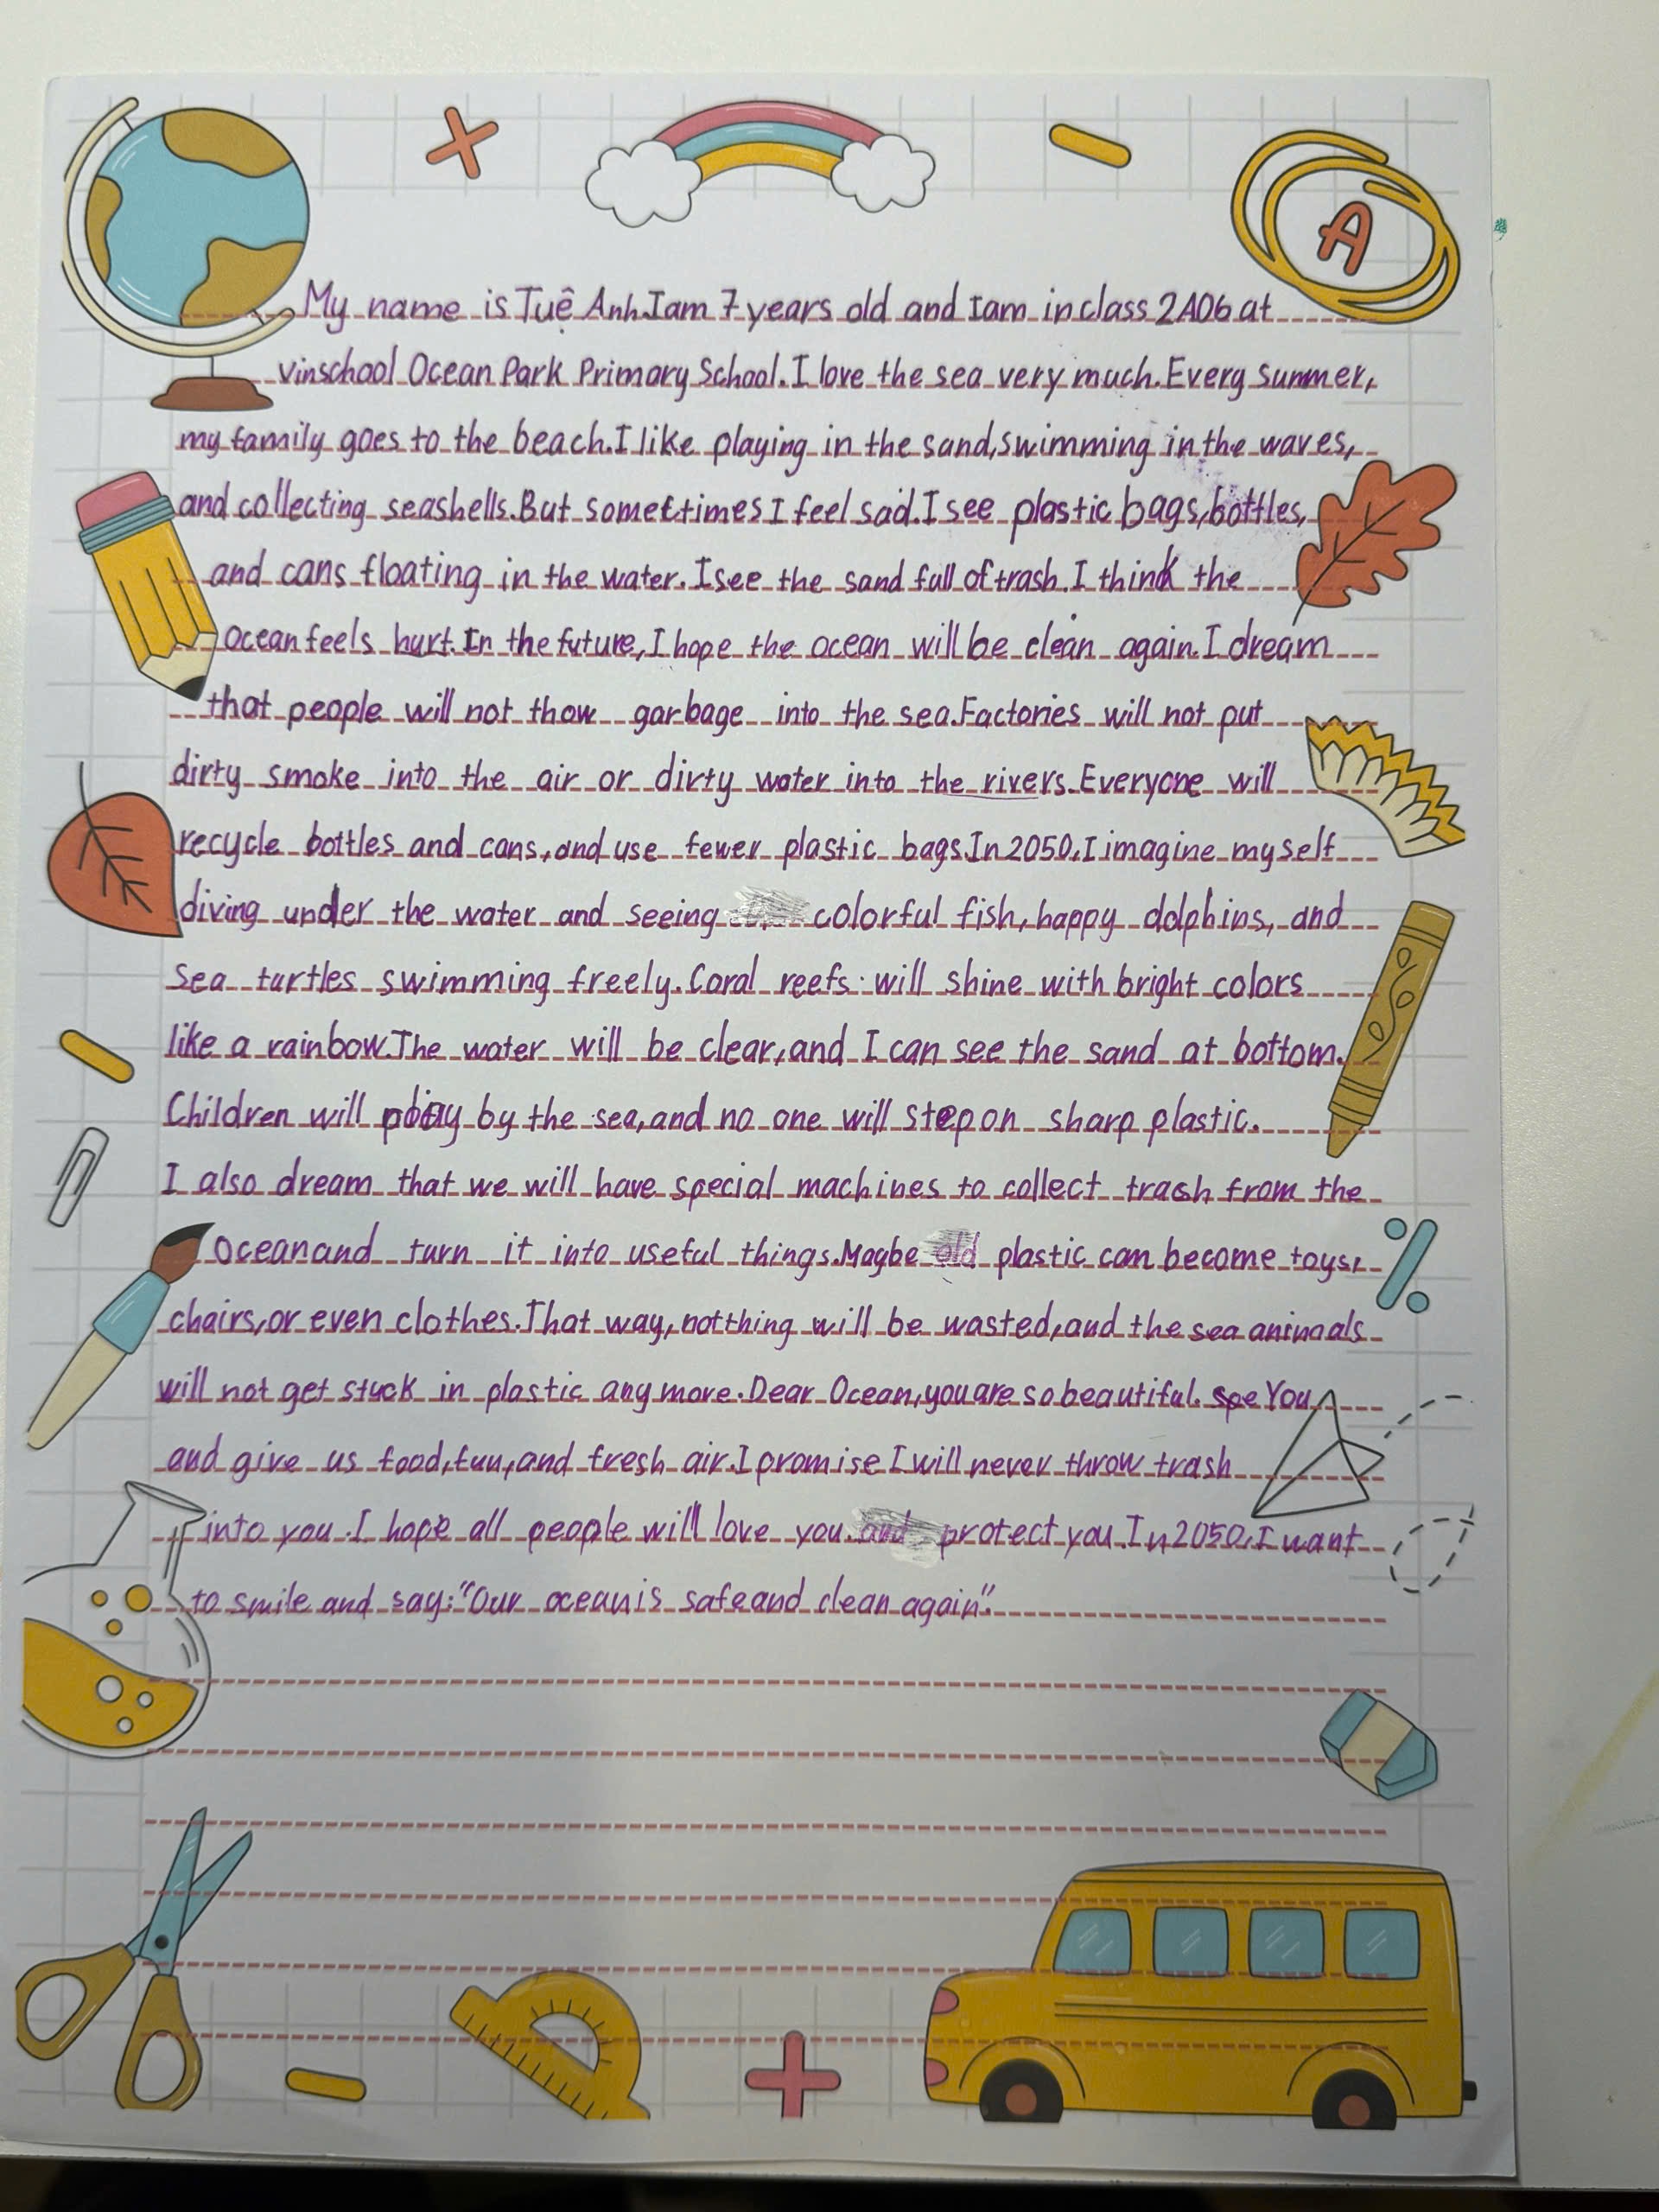 A
My name is Tuệ Anh. I am 7 years old and I am in class 2A06 at
vinschool Ocean Park Primary School. I love the sea very much. Every summer,
my family goes to the beach. I like playing in the sand, swimming in the waves,
and collecting seashells. But somettimes I feel sad. I see plastic bags, bottles,
and cans floating in the water. I see the sand full of trash. I think the
Ocean feels hurt. In the future, I hope the ocean will be clean again. I dream
that people will not thow garbage into the sea. Factories will not put
dirty smoke into the air or dirty water into the rivers. Everyone will
recycle bottles and cans, and use fewer plastic bags. In 2050, I imagine myself
diving under the water and seeing colorful fish, happy dolphins, and
sea turtles swimming freely. Coral reefs will shine with bright colors
like a rainbow. The water will be clear, and I can see the sand at bottom.
Children will by the sea, and no one will step on sharp plastic.
I also dream that we will have special machines to collect trash from the
Ocean and turn it into useful things. Maybe old plastic can become toys,
chairs, or even clothes. That way, notthing will be wasted, and the sea animals
will not get stuck in plastic any more. Dear Ocean, you are so beautiful. You
and give us food, fun, and fresh air. I promise I will never throw trash
into you. I hope all people will love you and protect you. In 2050, I want
to smile and say: "Our ocean is safe and clean again".